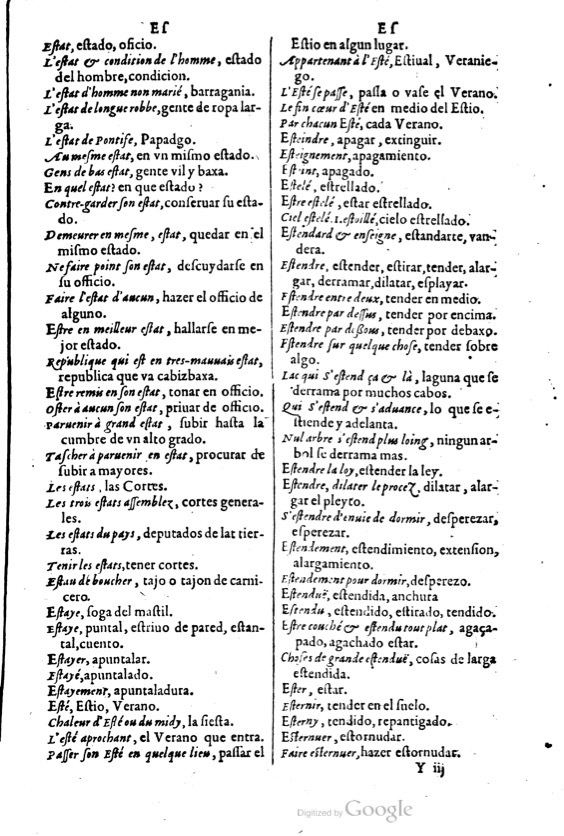 Eſ
Eſtat, eſtado, oficio.
L'eſtat & condition de l'homme, eſtado
del hombre, condicion.
L'eſtat d'homme non marié, barragania.
L'eſtat de longue robbe, gente de ropa lar-
ga.
L'eſtat de Pontife, Papadgo.
Au meſme eſtat, en vn miſmo eſtado.
Gens de bas eſtat, gente vil y baxa.
En quel eſtat? en que eſtado?
Contre-garder ſon eſtat, conſeruar ſu eſta-
do.
Demeurer en meſme, eſtat, quedar en el
miſmo eſtado.
Ne faire point ſon eſtat, deſcuydarſe en
ſu officio.
Faire l'eſtat d'aucun, hazer el officio de
alguno.
Eſtre en meilleur eſtat, hallarſe en me-
jor eſtado.
Republique qui eſt en tres-mauuais eſtat,
republica que va cabizbaxa.
Eſtre remis en ſon eſtat, tonar en officio.
Oſter à aucun ſon eſtat, priuar de officio.
Paruenir à grand eſtat, ſubir haſta la
cumbre de vn alto grado.
Taſcher à paruenir en eſtat, procurar de
ſubir a mayores.
Les eſtats, las Cortes.
Les trois eſtats aſſemblez, cortes genera-
les.
Les eſtats du pays, deputados de lat tier-
ras.
Tenir les eſtats, tener cortes.
Eſtau de boucher, tajo o tajon de carni-
cero.
Eſtaye, ſoga del maſtil.
Eſtaye, puntal, eſtriuo de pared, eſtan-
tal, cuento.
Eſtayer, apuntalar.
Eſtayé, apuntalado.
Eſtayement, apuntaladura.
Eſté, Eſtio, Verano.
Chaleur d'Eſté ou du midy, la ſieſta.
L'eſté aprochant, el Verano que entra.
Paſſer ſon Eſté en quelque lieu, paſſar el
Eſ
Eſtio en algun lugar.
Appartenant à l'Eſté, Eſtiual, Veranie-
go.
L'Eſté ſe paſſe, paſſa o vaſe el Verano.
Le fin cœur d'Eſté en medio del Eſtio.
Par chacun Eſté, cada Verano.
Eſteindre, apagar, extinguir.
Eſteignement, apagamiento.
Eſteint, apagado.
Eſtelé, eſtrellado.
Eſtre eſtelé, eſtar eſtrellado.
Ciel eſtelé. 1. eſtoillé, cielo eſtrellado.
Eſtendard & enſeigne, eſtandarte, van-
dera.
Eſtendre, eſtender, eſtirar, tender, alar-
gar, derramar, dilatar, eſplayar.
Eſtendre entre deux, tender en medio.
Eſtendre par deſſus, tender por encima.
Eſtendre par diſſous, tender por debaxo.
Eſtendre ſur quelque choſe, tender ſobre
algo.
Lac qui s'eſtend çà & là, laguna que ſe
derrama por muchos cabos.
Qui s'eſtend & s'aduance, lo que ſe e-
ſtiende y adelanta.
Nul arbre s'eſtend plus loing, ningun ar-
bol ſe derrama mas.
Eſtendre la loy, eſtender la ley.
Eſtendre, dilater le procez, dilatar, alar-
gar el pleyto.
S'eſtendre d'enuie de dormir, deſperezar,
eſperezar.
Eſtendement, eſtendimiento, extenſion,
alargamiento.
Eſtendement pour dormir, deſperezo.
Eſtenduë, eſtendida, anchura
Eſtendu, eſtendido, eſtirado, tendido.
Eſtre couché & eſtendu tout plat, agaça-
pado, agachado eſtar.
Choſes de grande eſtenduë, coſas de larga
eſtendida.
Eſter, eſtar.
Eſternir, tender en el ſuelo.
Eſterny, tendido, repantigado.
Eſternuer, eſtornudar.
Faire eſternuer, hazer eſtornudar.
Y iij
Digitized by Google